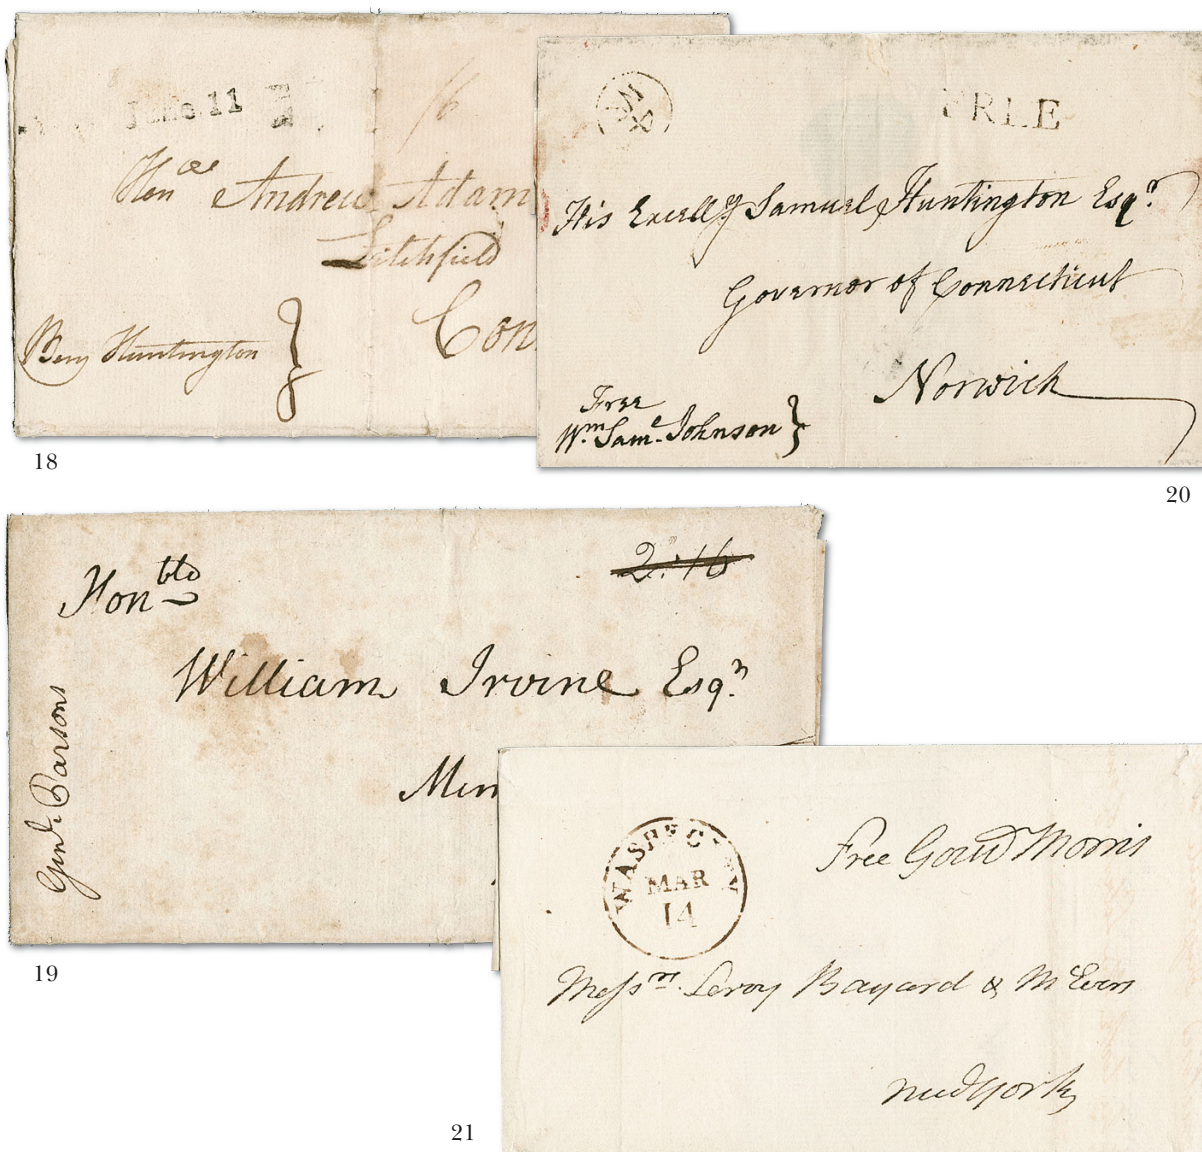 June 11
16
Honble Andrew Adam
Litchfield
Con
Benj Huntington
18
FREE
His Excelly Samuel Huntington Esqr.
Governor of Connecticut
Norwich
Free
Wm. Saml. Johnson
20
2:16
Honble
William Irvine Esqr.
Genl. Parsons
19
WASHN. CITY
MAR
14
Free Gouvr Morris
Messrs. Leroy Bayard & McEvers
newyork
21